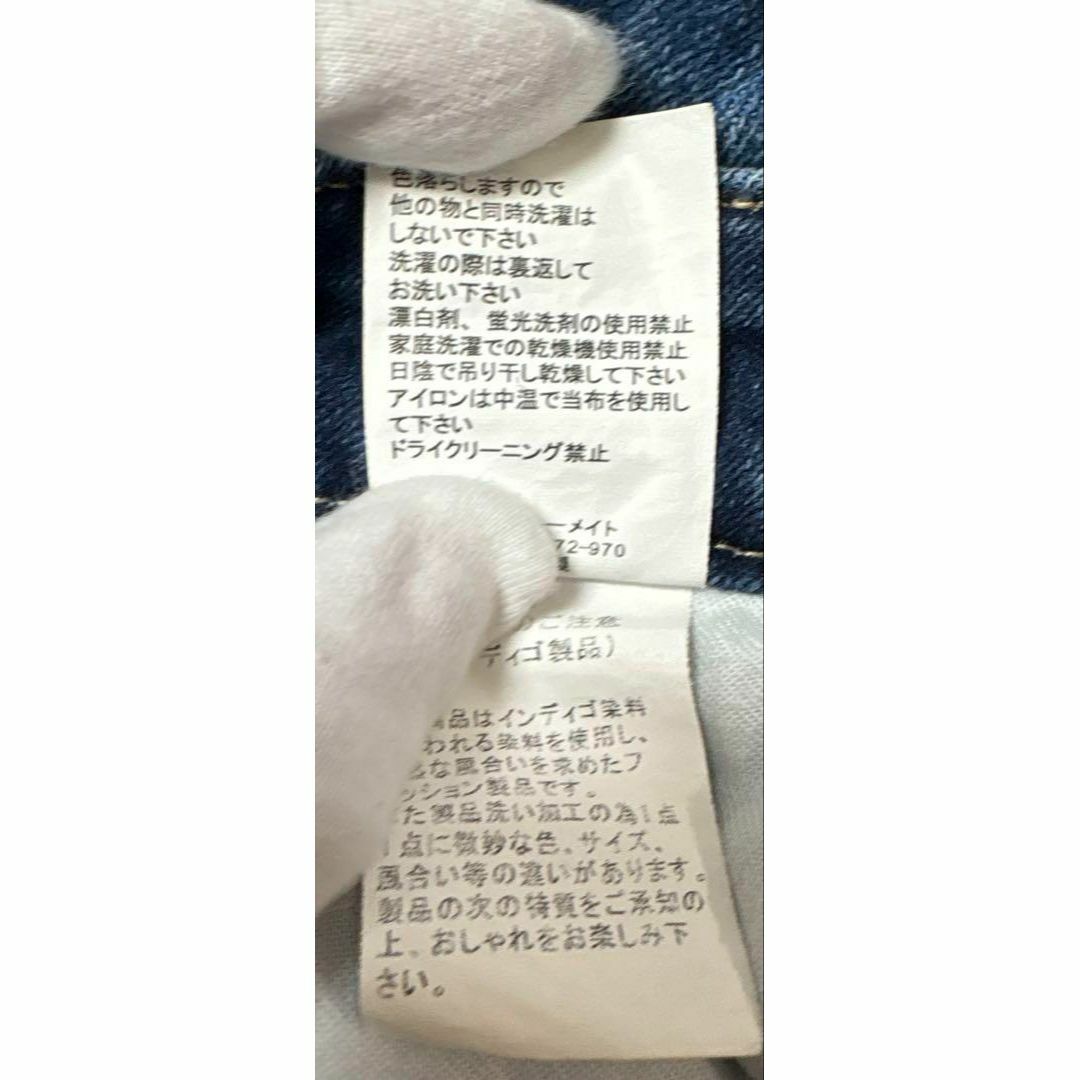 色落ちしますので
他の物と同時洗濯は
しないで下さい
洗濯の際は裏返して
お洗い下さい
漂白剤、蛍光洗剤の使用禁止
家庭洗濯での乾燥機使用禁止
日陰で吊り干し乾燥して下さい
アイロンは中温で当布を使用し
て下さい
ドライクリーニング禁止
ーメイト
72-970
ご注意
ディゴ製品)
品はインディゴ染料
われる染料を使用し、
な風合いを求めたフ
ッション製品です。
た製品洗い加工の為1点
1点に微妙な色、サイズ、
風合い等の違いがあります。
製品の次の特質をご承知の
上、おしゃれをお楽しみ下
さい。